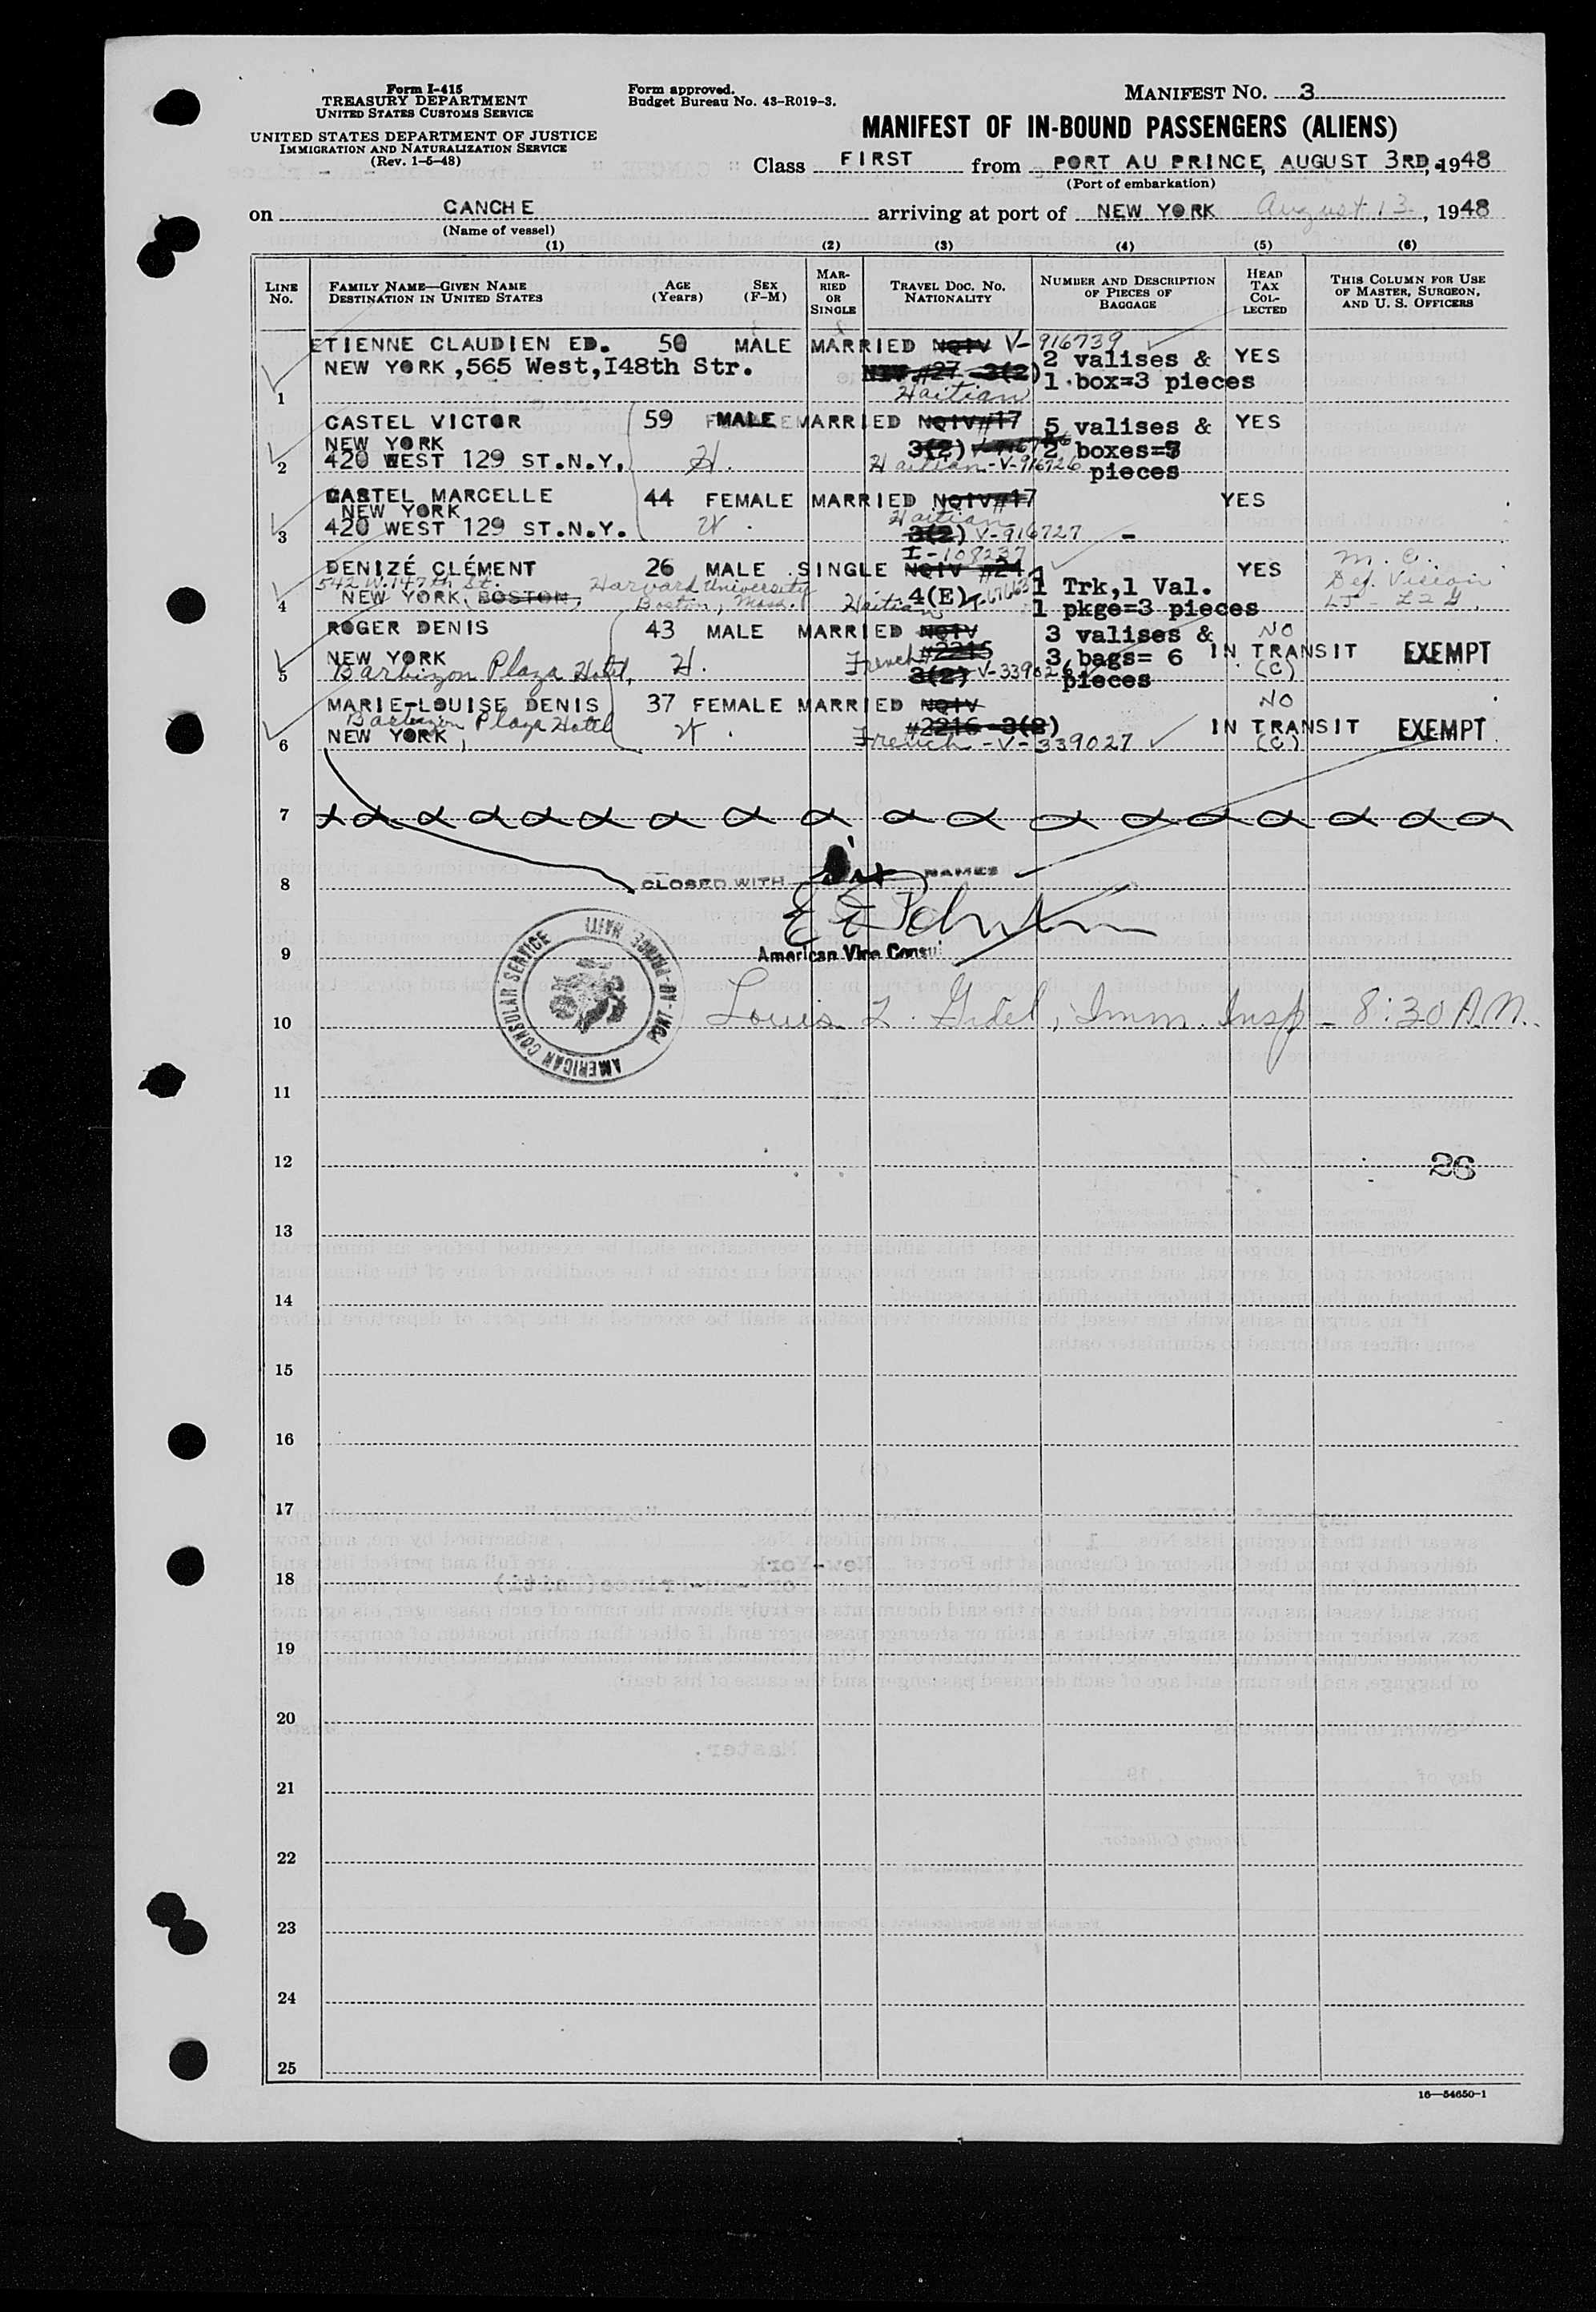 Form I-415
TREASURY DEPARTMENT
UNITED STATES CUSTOMS SERVICE
UNITED STATES DEPARTMENT OF JUSTICE
IMMIGRATION AND NATURALIZATION SERVICE
(Rev. 1-5-48)
Form approved.
Budget Bureau No. 43-R019-3.
MANIFEST NO. 3
MANIFEST OF IN-BOUND PASSENGERS (ALIENS)
Class FIRST from PORT AU PRINCE, AUGUST 3RD, 1948
(Port of embarkation)
on CANCHE arriving at port of NEW YORK August 13, 1948
(Name of vessel)
(1) (2) (3) (4) (5) (6)
LINE NO.
FAMILY NAME—GIVEN NAME
DESTINATION IN UNITED STATES
AGE (Years)
SEX (F-M)
MARRIED OR SINGLE
TRAVEL DOC. NO.
NATIONALITY
NUMBER AND DESCRIPTION OF PIECES OF BAGGAGE
HEAD TAX COLLECTED
THIS COLUMN FOR USE OF MASTER, SURGEON, AND U. S. OFFICERS
ETIENNE CLAUDIEN ED. 50 MALE MARRIED NQIV V-916739
NEW YORK, 565 West, I48th Str. #27 3(2) 2 valises & YES
1 Haitian 1 box=3 pieces
CASTEL VICTOR 59 MALE MARRIED NQIV #17 5 valises & YES
NEW YORK 3(2) 2 boxes=
2 420 WEST 129 ST.N.Y. H. Haitian-V-916726 pieces
CASTEL MARCELLE 44 FEMALE MARRIED NQIV #17 YES
NEW YORK Haitian
3 420 WEST 129 ST.N.Y. W. 3(2) V-916727 -
I-108237
DENIZÉ CLÉMENT 26 MALE SINGLE NQIV #24 YES M. C.
542 W. 147th St. Harvard University 1 Trk, 1 Val. Def. Vision
4 NEW YORK, BOSTON, Boston, Mass. Haitian 4(E) 1 pkge=3 pieces
ROGER DENIS 43 MALE MARRIED NQIV 3 valises & NO
NEW YORK H. French #2215 3 bags= 6 IN TRANSIT EXEMPT
5 Barbizon Plaza Hotel, 3(2) V-339026 pieces (C)
MARIE-LOUISE DENIS 37 FEMALE MARRIED NQIV NO
Barbizon Plaza Hotel W. #2216 3(2) IN TRANSIT EXEMPT
6 NEW YORK, French-V-339027 (C)
7
8 CLOSED WITH Six NAMES
9 American Vice Consul
AMERICAN CONSULAR SERVICE
PORT-AU-PRINCE, HAITI
10 Louis Z. Gidel, Imm. Insp - 8:30 A.M.
11
12 26
13
14
15
16
17
18
19
20
21
22
23
24
25
16—54650-1